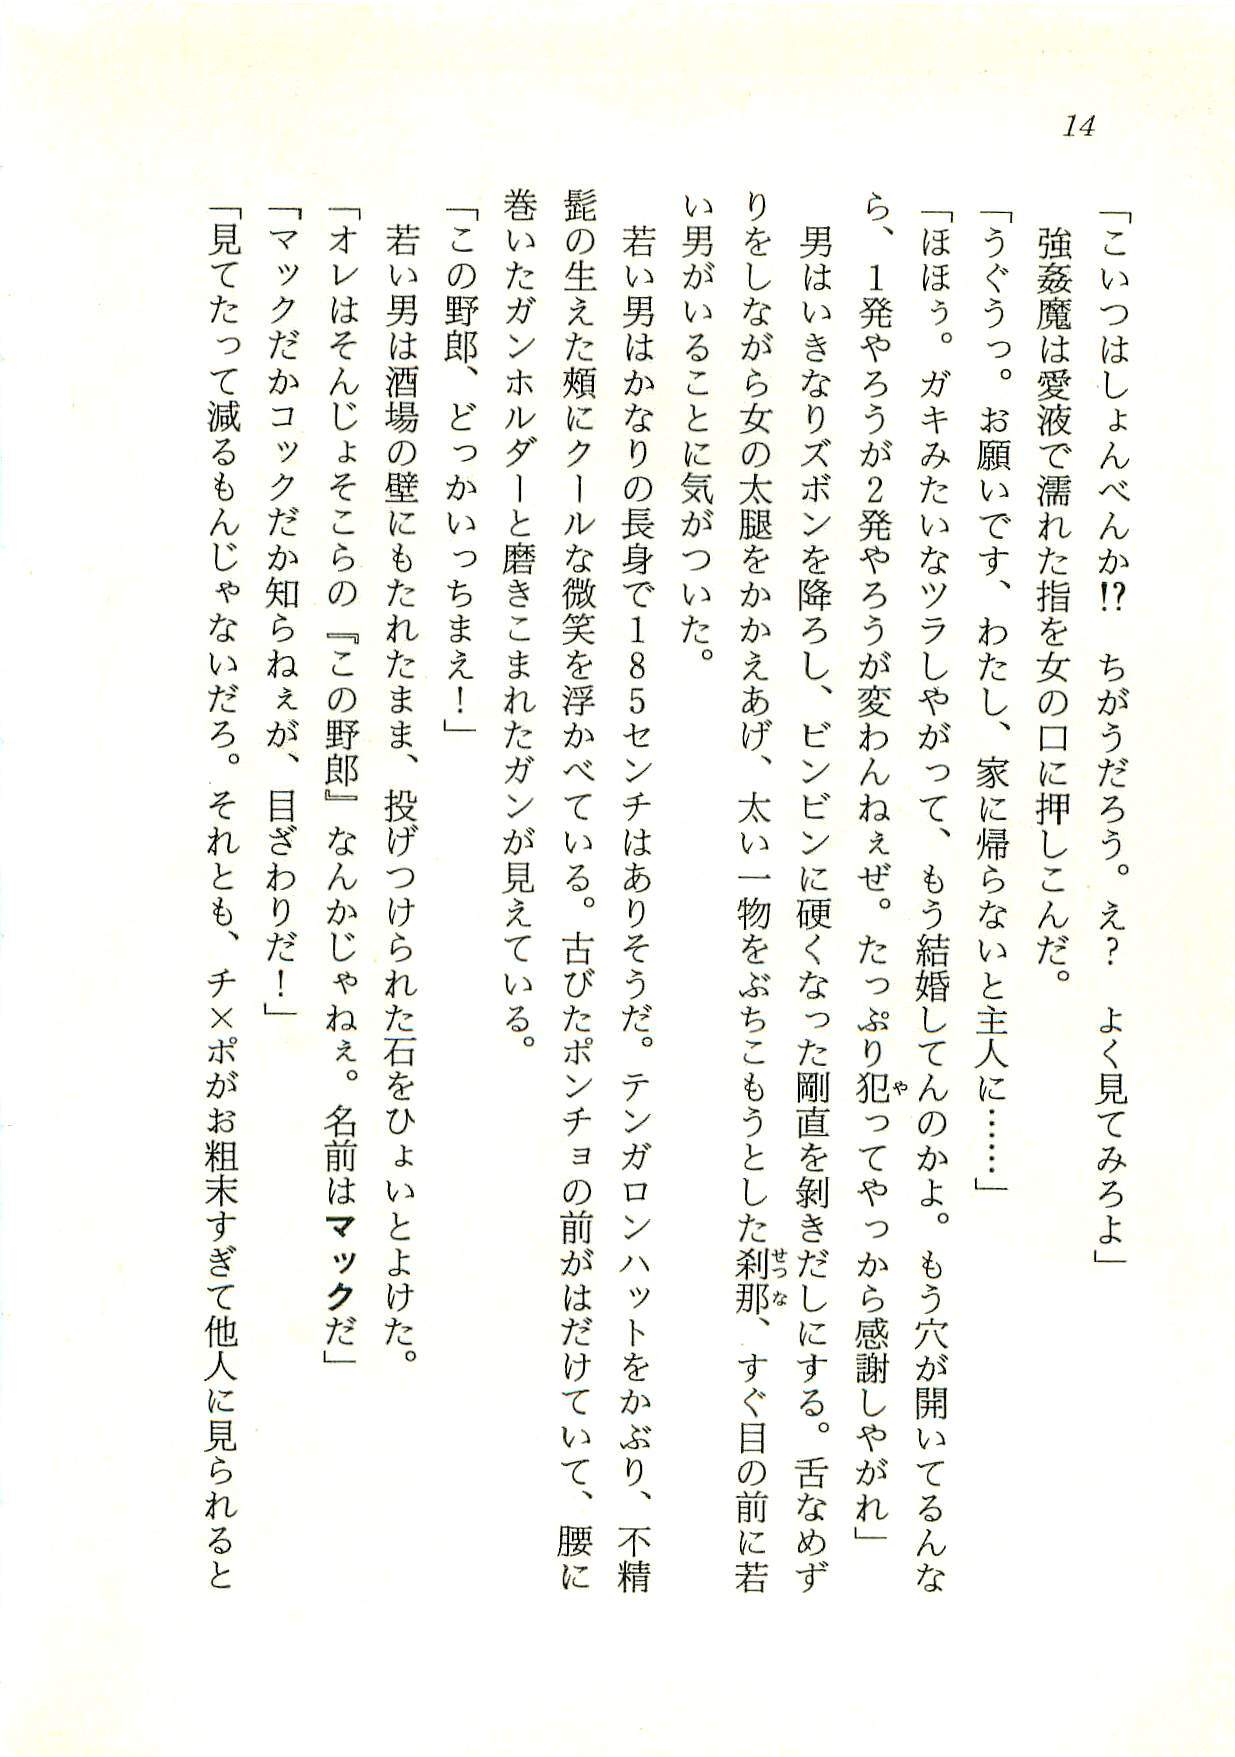 14
「こいつはしょんべんか!?　ちがうだろう。え？　よく見てみろよ」
　強姦魔は愛液で濡れた指を女の口に押しこんだ。
「うぐうっ。お願いです、わたし、家に帰らないと主人に……」
「ほほぅ。ガキみたいなツラしやがって、もう結婚してんのかよ。もう穴が開いてるんな
ら、1発やろうが2発やろうが変わんねぇぜ。たっぷり犯ってやっから感謝しやがれ」
　男はいきなりズボンを降ろし、ビンビンに硬くなった剛直を剝きだしにする。舌なめず
りをしながら女の太腿をかかえあげ、太い一物をぶちこもうとした刹那、すぐ目の前に若
い男がいることに気がついた。
　若い男はかなりの長身で185センチはありそうだ。テンガロンハットをかぶり、不精
髭の生えた頰にクールな微笑を浮かべている。古びたポンチョの前がはだけていて、腰に
巻いたガンホルダーと磨きこまれたガンが見えている。
「この野郎、どっかいっちまえ！」
　若い男は酒場の壁にもたれたまま、投げつけられた石をひょいとよけた。
「オレはそんじょそこらの『この野郎』なんかじゃねぇ。名前はマックだ」
「マックだかコックだか知らねぇが、目ざわりだ！」
「見てたって減るもんじゃないだろ。それとも、チ×ポがお粗末すぎて他人に見られると